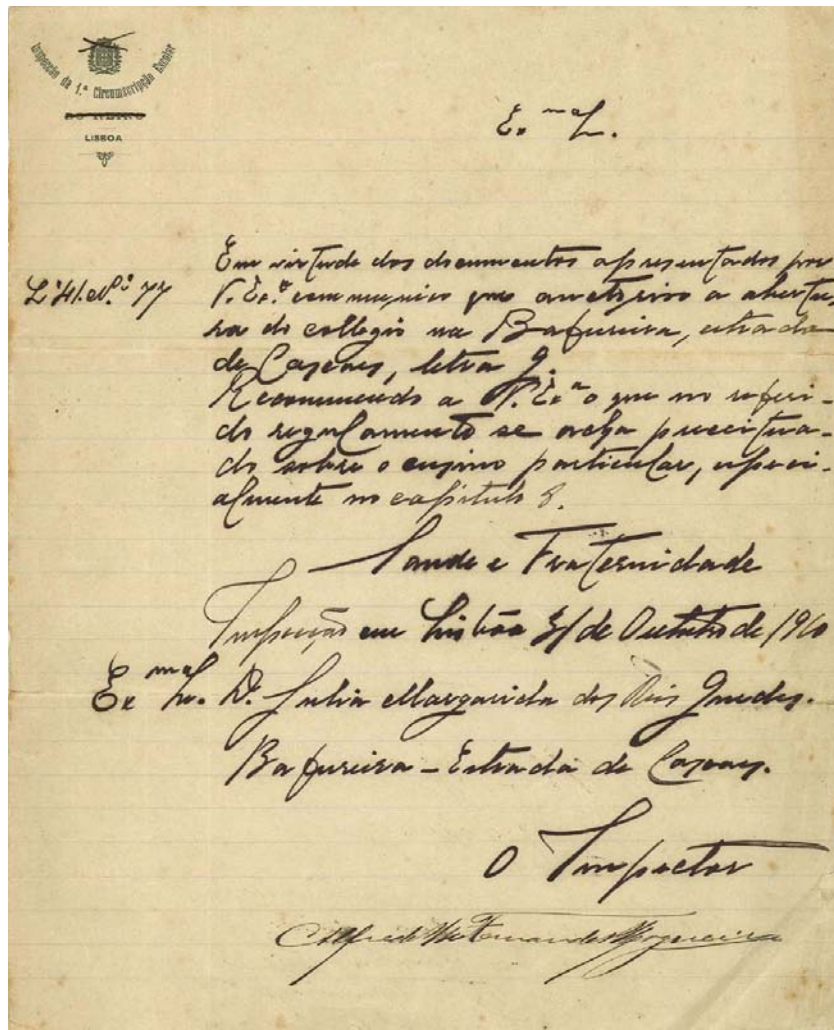 Inspecção da 1.ª Circumscripção Escolar
DO REINO
LISBOA
Ex.ma Sr.
L.º 41. N.º 77
Em virtude dos documentos apresentados por
V. Ex.ª communico que auctoriso a abertu-
ra do collegio na Bafureira, estrada
de Cascaes, letra G.
Recommendo a V. Ex.ª o que no referi-
do regulamento se acha preceitua-
do sobre o ensino particular, especi-
almente no capitulo 8.
Saude e Fraternidade
Inspecção em Lisboa 31 de Outubro de 1910
Ex.ma Sr. D. Julia Margarida dos Reis Guedes.
Bafureira - Estrada de Cascaes.
O Inspector
Alfredo Fernandes Nogueira